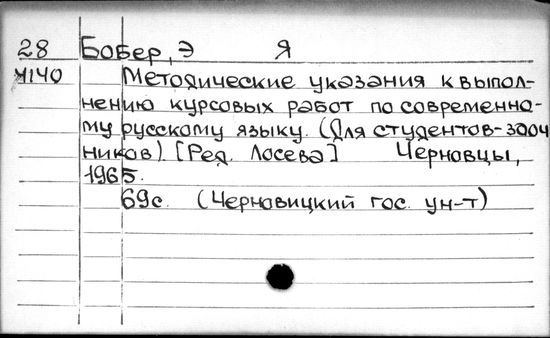 28 Бобер, Э Я
М140 Методические указания к выпол-
нению курсовых работ по современно-
му русскому языку. (Для студентов-заоч
ников). [Ред. Лосева] Черновцы,
1965.
69с. (Черновицкий гос. ун-т)